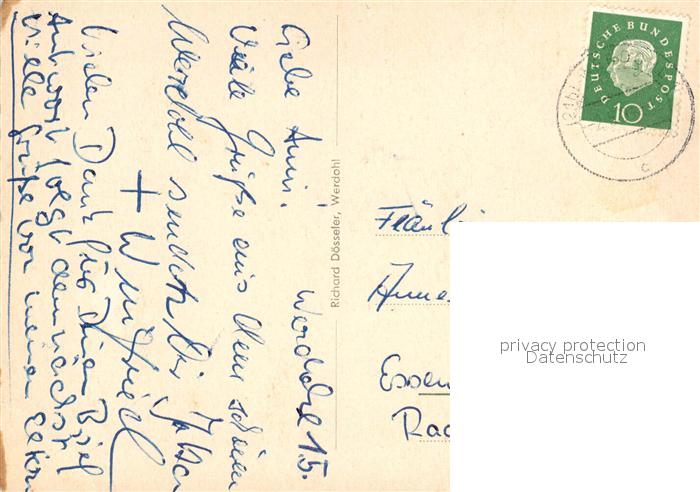 Werdohl 15.
Liebe Anni!
Viele Grüße aus dem schönen
Werdohl sendet Dir
+ Winfried
Vielen Dank für Deinen Brief
Antwort folgt demnächst
Viele Grüße von meinen Eltern
Richard Dösseler, Werdohl
DEUTSCHE BUNDESPOST
10
c
Fräulei
Anne
Essen
Ra
privacy protection
Datenschutz